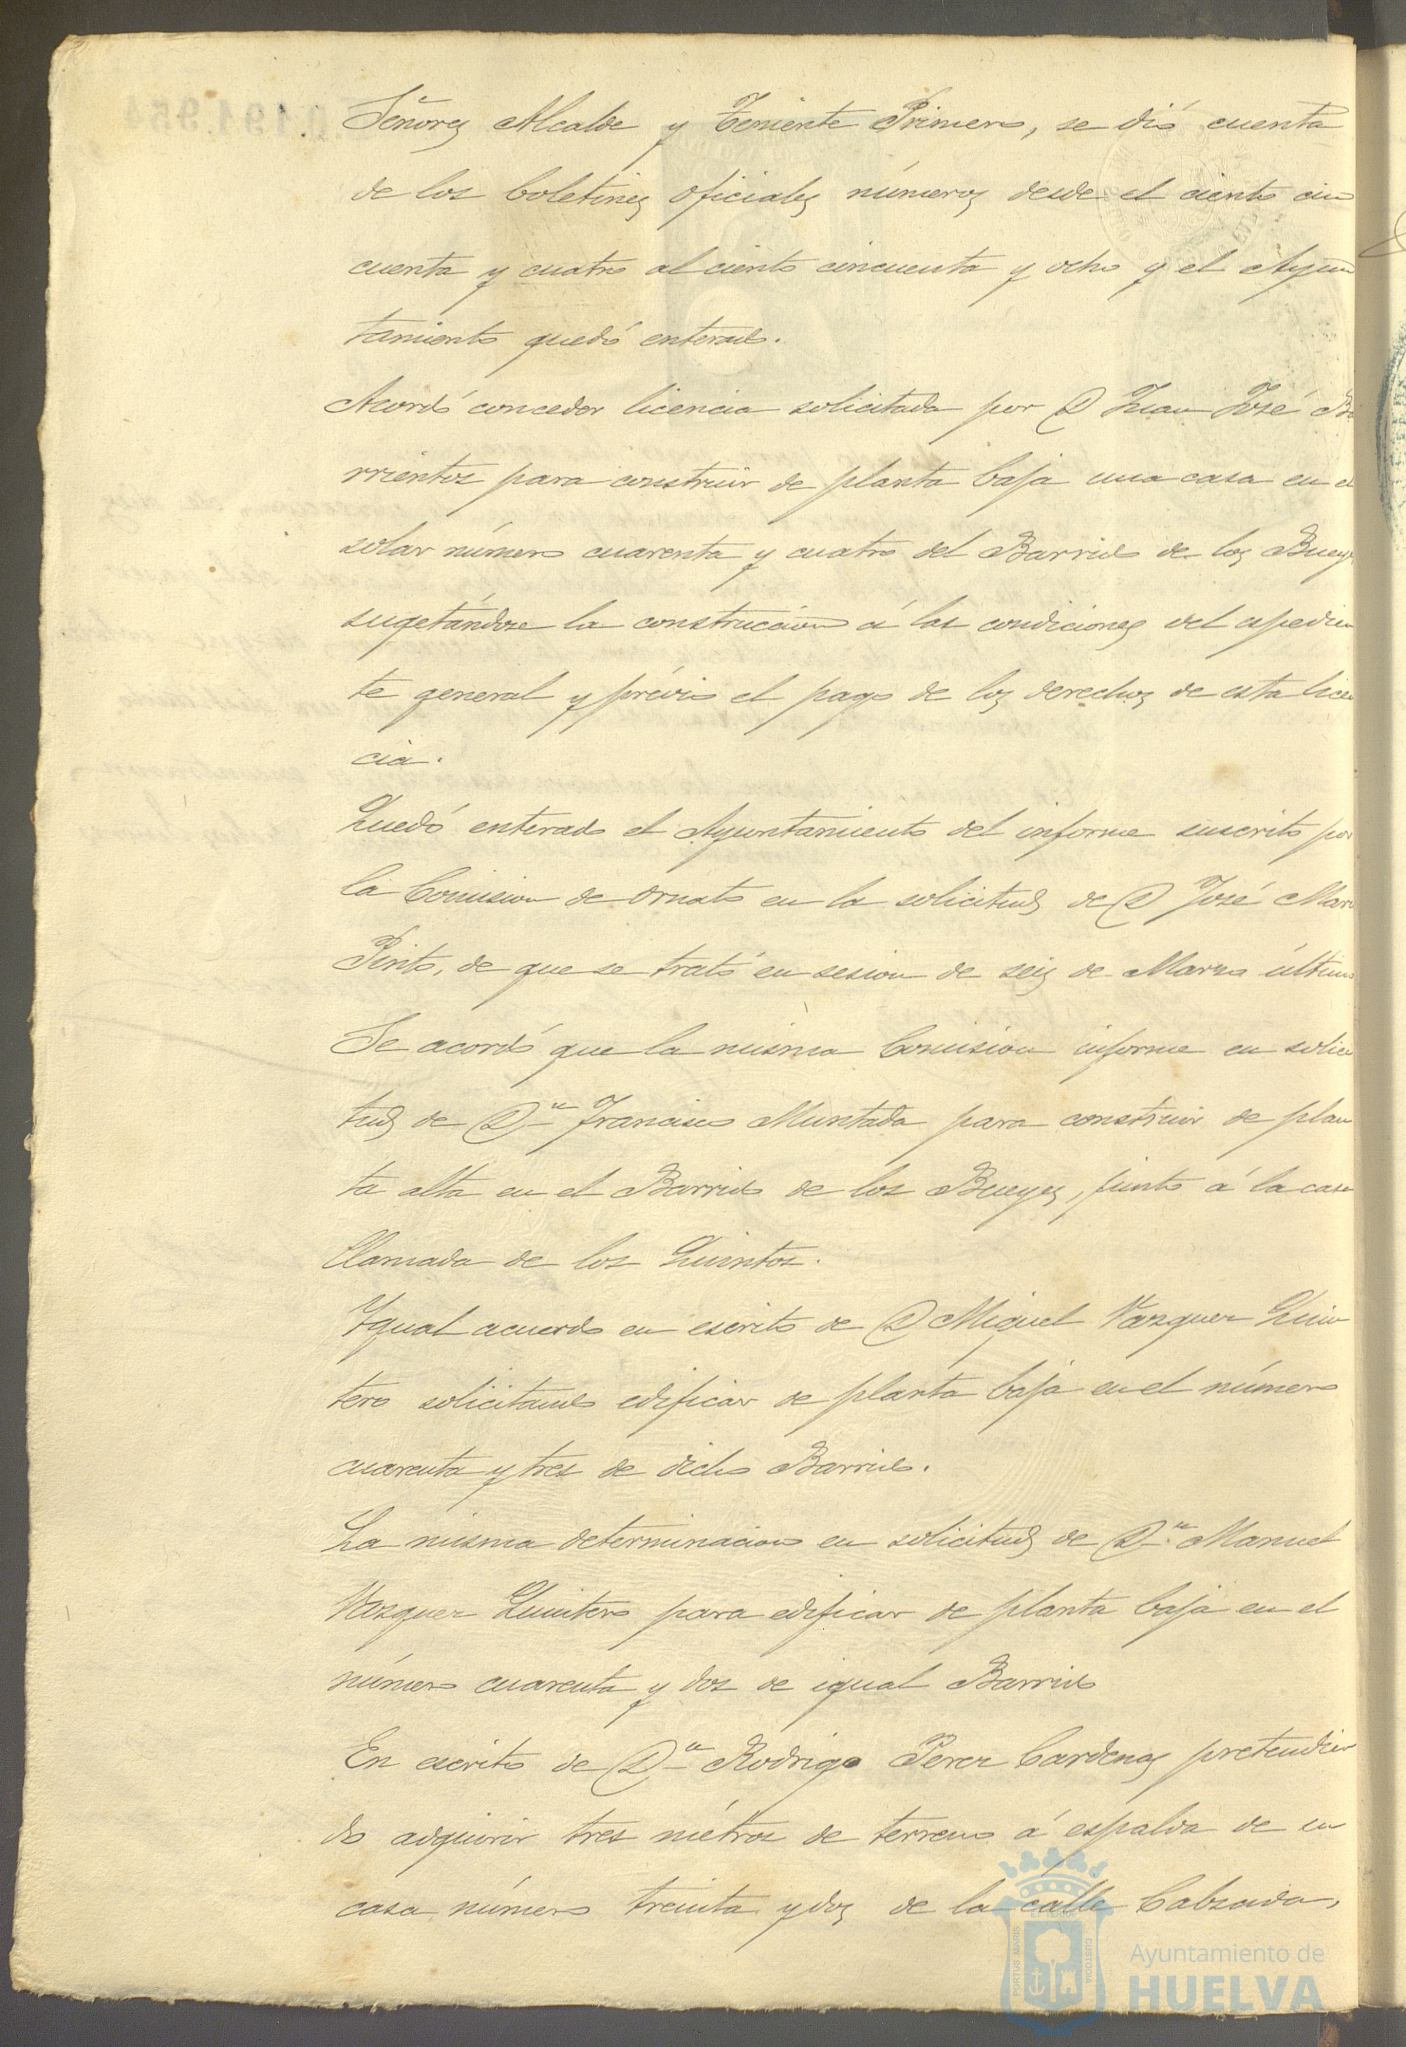 Señores Alcalde y Teniente Primero, se dió cuenta
de los boletines oficiales números desde el ciento cin
cuenta y cuatro al ciento cincuenta y ocho y el Ayun
tamiento quedó enterado.
Acordó conceder licencia solicitada por D Juan José Ba
rrientos para construir de planta baja una casa en el
solar número cuarenta y cuatro del Barrio de los Bueyes
sugetándose la construccion á las condiciones del espedien
te general y prévio el pago de los derechos de esta licen
cia.
Quedó enterado el Ayuntamiento del informe suscrito por
la Comision de ornato en la solicitud de D José Mari
Pinto, de que se trató en sesion de seis de Marzo último
Se acordó que la misma Comision informe en solici
tud de Dn Francisco Muntada para construir de plan
ta alta en el Barrio de los Bueyes, junto á la casa
llamada de los Quintos.
Igual acuerdo en escrito de D Miguel Vazquez Quin
tero solicitando edificar de planta baja en el número
cuarenta y tres de dicho Barrio.
La misma determinacion en solicitud de Dn. Manuel
Vazquez Quintero para edificar de planta baja en el
número cuarenta y dos de igual Barrio
En escrito de Dn Rodrigo Perez Cardenas pretendien
do adquirir tres métros de terreno á espalda de su
casa número treinta y dos de la calle Calzada,
Ayuntamiento de
HUELVA
PORTUS MARIS
CUSTODIA